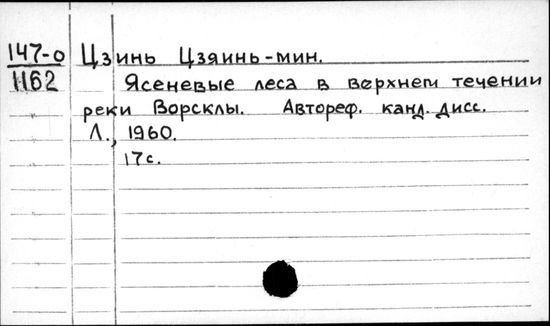 147-о Цзинь Цзяинь-мин.
1162 Ясеневые леса в верхнем течении
реки Ворсклы. Автореф. канд. дисс.
Л., 1960.
17с.